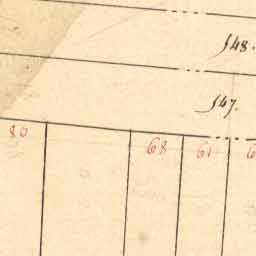 548.
547.
80 68 61